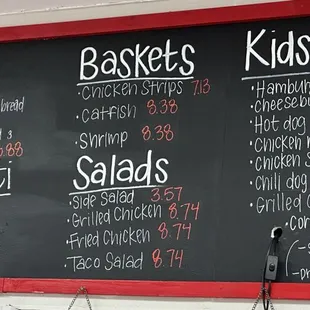 bread
.88
Baskets
· Chicken Strips 7.13
· Catfish 8.38
· Shrimp 8.38
Salads
· Side Salad 3.57
· Grilled Chicken 8.74
· Fried Chicken 8.74
· Taco Salad 8.74
Kids
· Hambur
· cheesebu
· Hot dog
· Chicken
· Chicken S
· Chili dog
· Grilled C